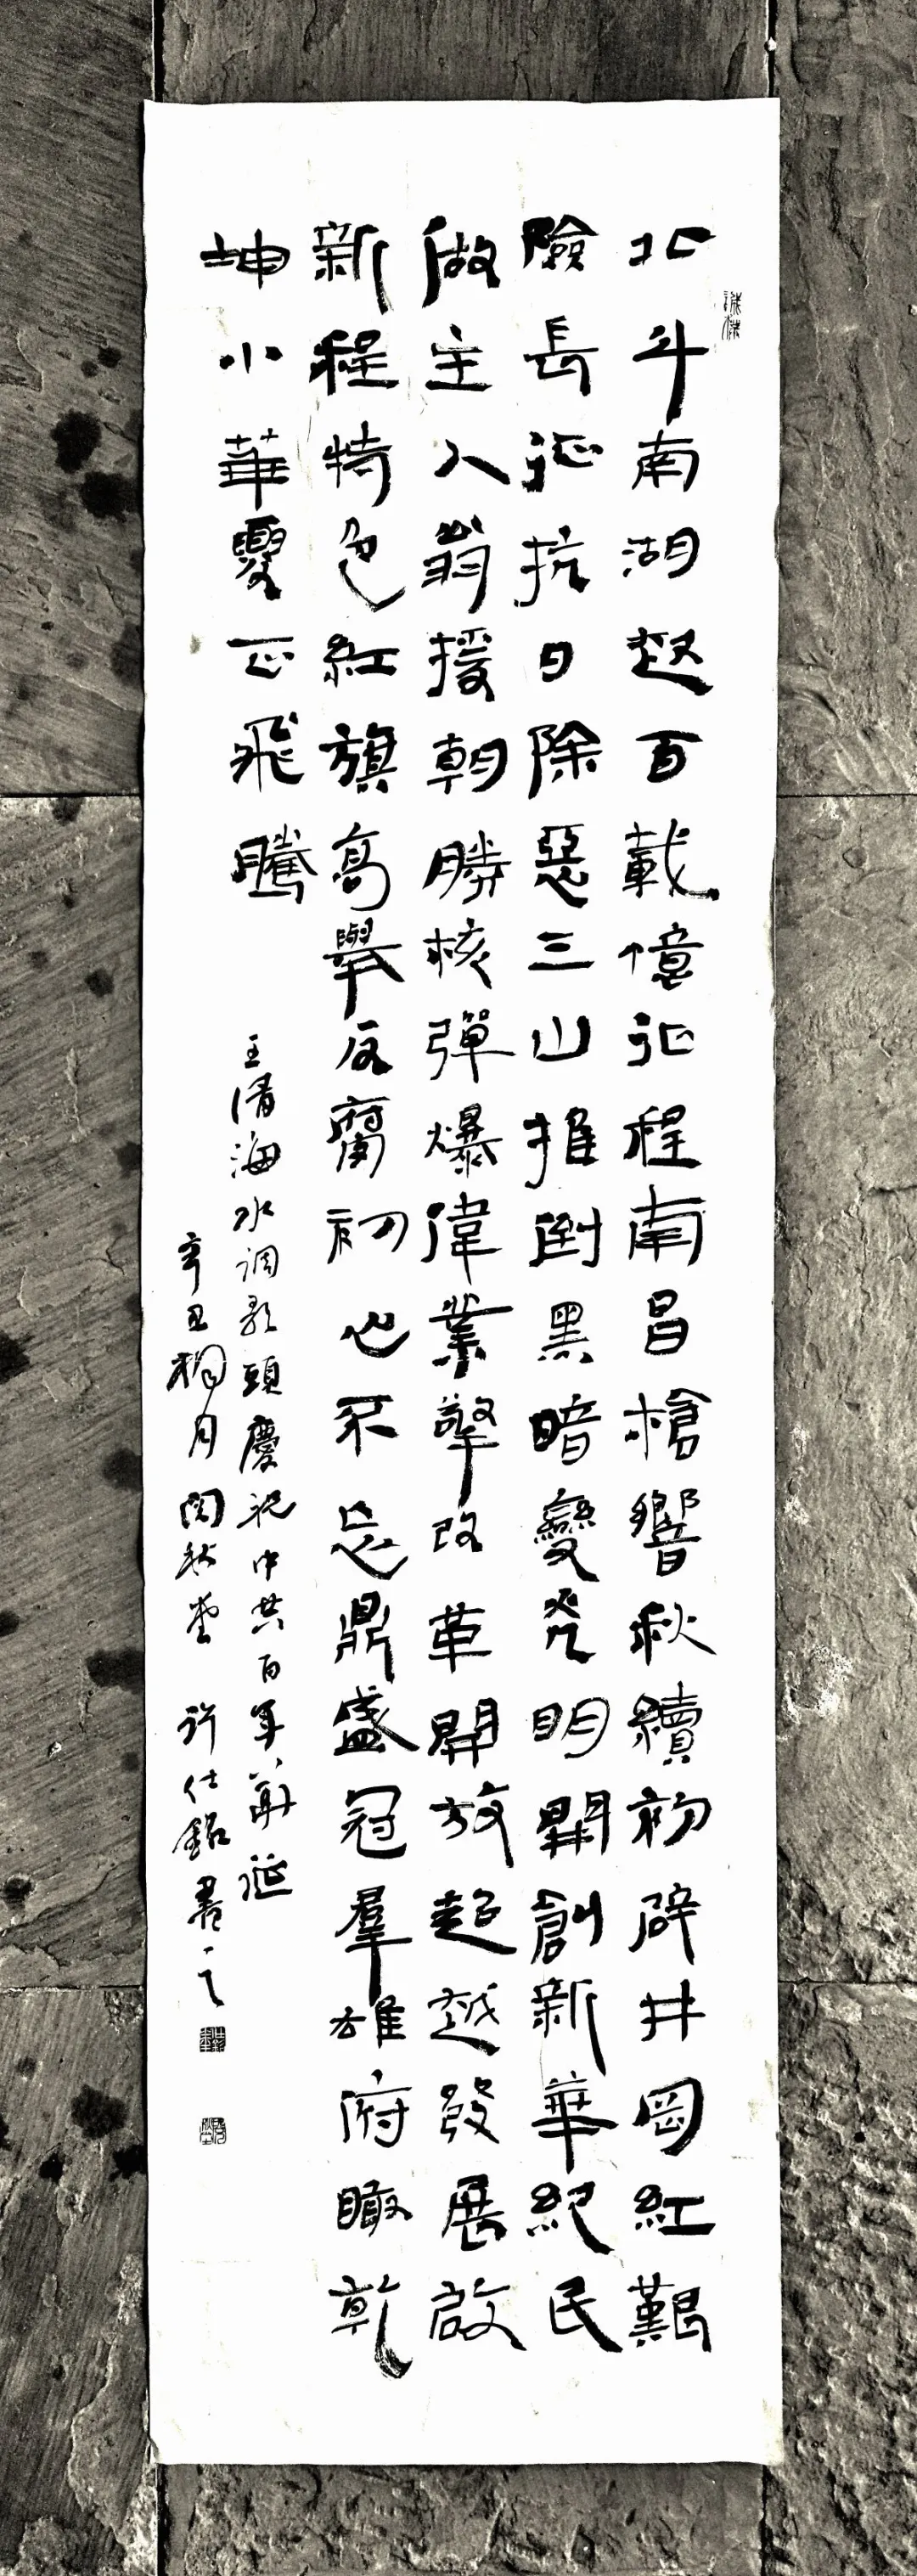 北斗南湖起百載憶征程南昌槍響秋續初辟井岡紅艱
險長征抗日除惡三山推倒黑暗變光明開創新華紀民
做主人翁援朝勝核彈爆偉業擎改革開放超越發展啟
新程特色紅旗高舉反腐初心不忘鼎盛冠羣雄府瞰乾
坤小華夏正飛騰
王清海水调歌頭慶祝中共百年華誕
辛丑桐月 閑 許仕銘書之